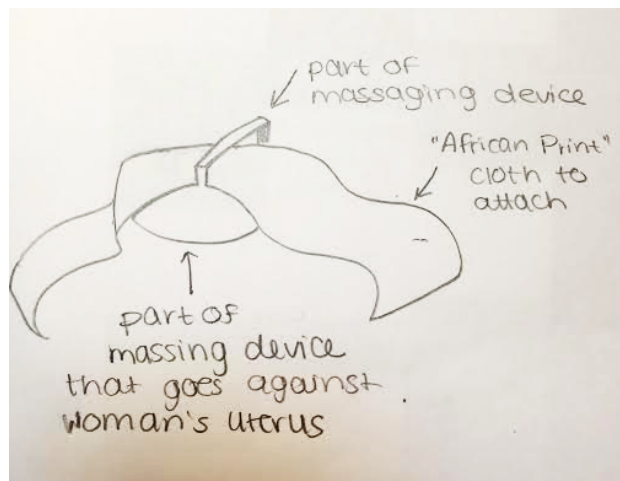 part of
massaging device
"African Print"
cloth to
attach
part of
massing device
that goes against
woman's uterus